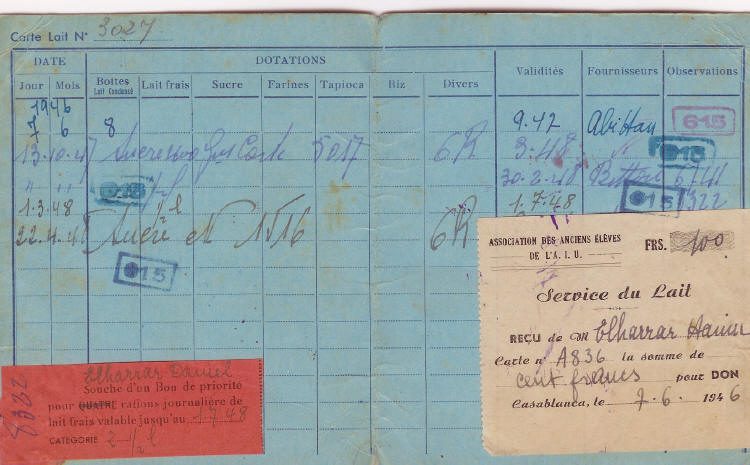 Carte Lait N° 3027
DATE DOTATIONS Validités Fournisseurs Observations
Jour Mois Boites Lait Condensé Lait frais Sucre Farines Tapioca Riz Divers
1946
7 6 8 9.47 615
13.10.47 Sucre Carte 5017 6R 3.48 615
" " 015 ½ l 30.2.48
1.3.48 ½ l 1.7.48 015 1322
22.4.48 Sucre et N° 1516 6R
015
ASSOCIATION DES ANCIENS ÉLÈVES
DE L'A. I. U.
FRS. 100
Service du Lait
REÇU de M Elharrar
Carte n° A836 la somme de
cent francs pour DON
Casablanca, le 7-6. 1946
Elharrar Daniel
Souche d'un Bon de priorité
pour QUATRE rations journalière de
lait frais valable jusqu'au 1.7.48
CATEGORIE 2 ½ l